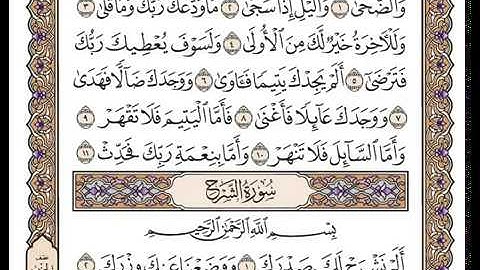 وَٱلضُّحَىٰ ١ وَٱلَّيْلِ إِذَا سَجَىٰ ٢ مَا وَدَّعَكَ رَبُّكَ وَمَا قَلَىٰ ٣
وَلَلْـَٔاخِرَةُ خَيْرٌ لَّكَ مِنَ ٱلْأُولَىٰ ٤ وَلَسَوْفَ يُعْطِيكَ رَبُّكَ
فَتَرْضَىٰٓ ٥ أَلَمْ يَجِدْكَ يَتِيمًا فَـَٔاوَىٰ ٦ وَوَجَدَكَ ضَآلًّا فَهَدَىٰ
٧ وَوَجَدَكَ عَآئِلًا فَأَغْنَىٰ ٨ فَأَمَّا ٱلْيَتِيمَ فَلَا تَقْهَرْ ٩
وَأَمَّا ٱلسَّآئِلَ فَلَا تَنْهَرْ ١٠ وَأَمَّا بِنِعْمَةِ رَبِّكَ فَحَدِّثْ ١١
سُورَةُ الشَّرْحِ
بِسْمِ ٱللَّهِ ٱلرَّحْمَٰنِ ٱلرَّحِيمِ
أَلَمْ نَشْرَحْ لَكَ صَدْرَكَ ١ وَوَضَعْنَا عَنكَ وِزْرَكَ ٢